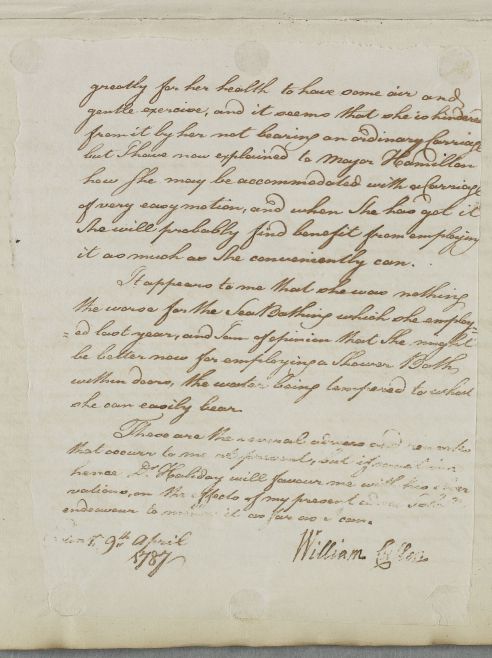 greatly for her health to have some air and
gentle exercise, and it seems that she is hindered
from it by her not bearing an ordinary Carriage
but I have now explained to Mayor Hamillon
how She may be accommodated with a Carriage
of very easy motion, and when She has got it
She will probably find benefit from employing
it as much as She conveniently can.
It appears to me that she was nothing
the worse for the Sea Bathing which she employ-
=ed last year, and I am of opinion that She might
be better now for employing a Shower Bath
within doors, the water being tempered to what
she can easily bear
These are the several advices and remarks
that occurr to me at present, but if some time
hence Dr. Haliday will favour me with his obser
vations, on the effects of my present advice I shall
endeavour to mend it as far as I can.
9th April
1787
William Cullen